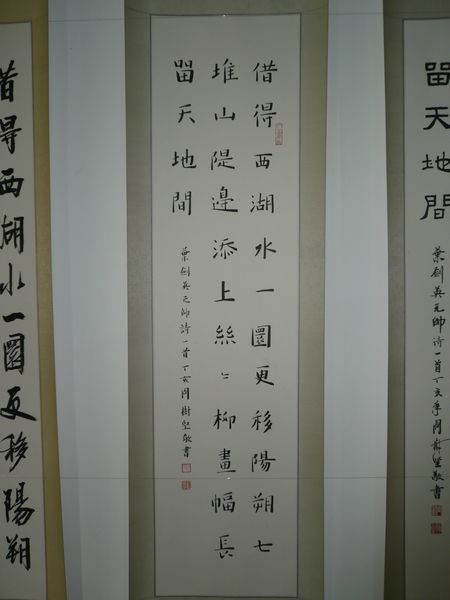 畱天地間
葉劍英元帥詩一首丁亥年周樹堅敬書
借得西湖水一圜更移陽朔七
堆山隄邊添上絲〻柳畫幅長
畱天地間
葉劍英元帥詩一首丁亥周樹堅敬書
借得西湖水一圜更移陽朔